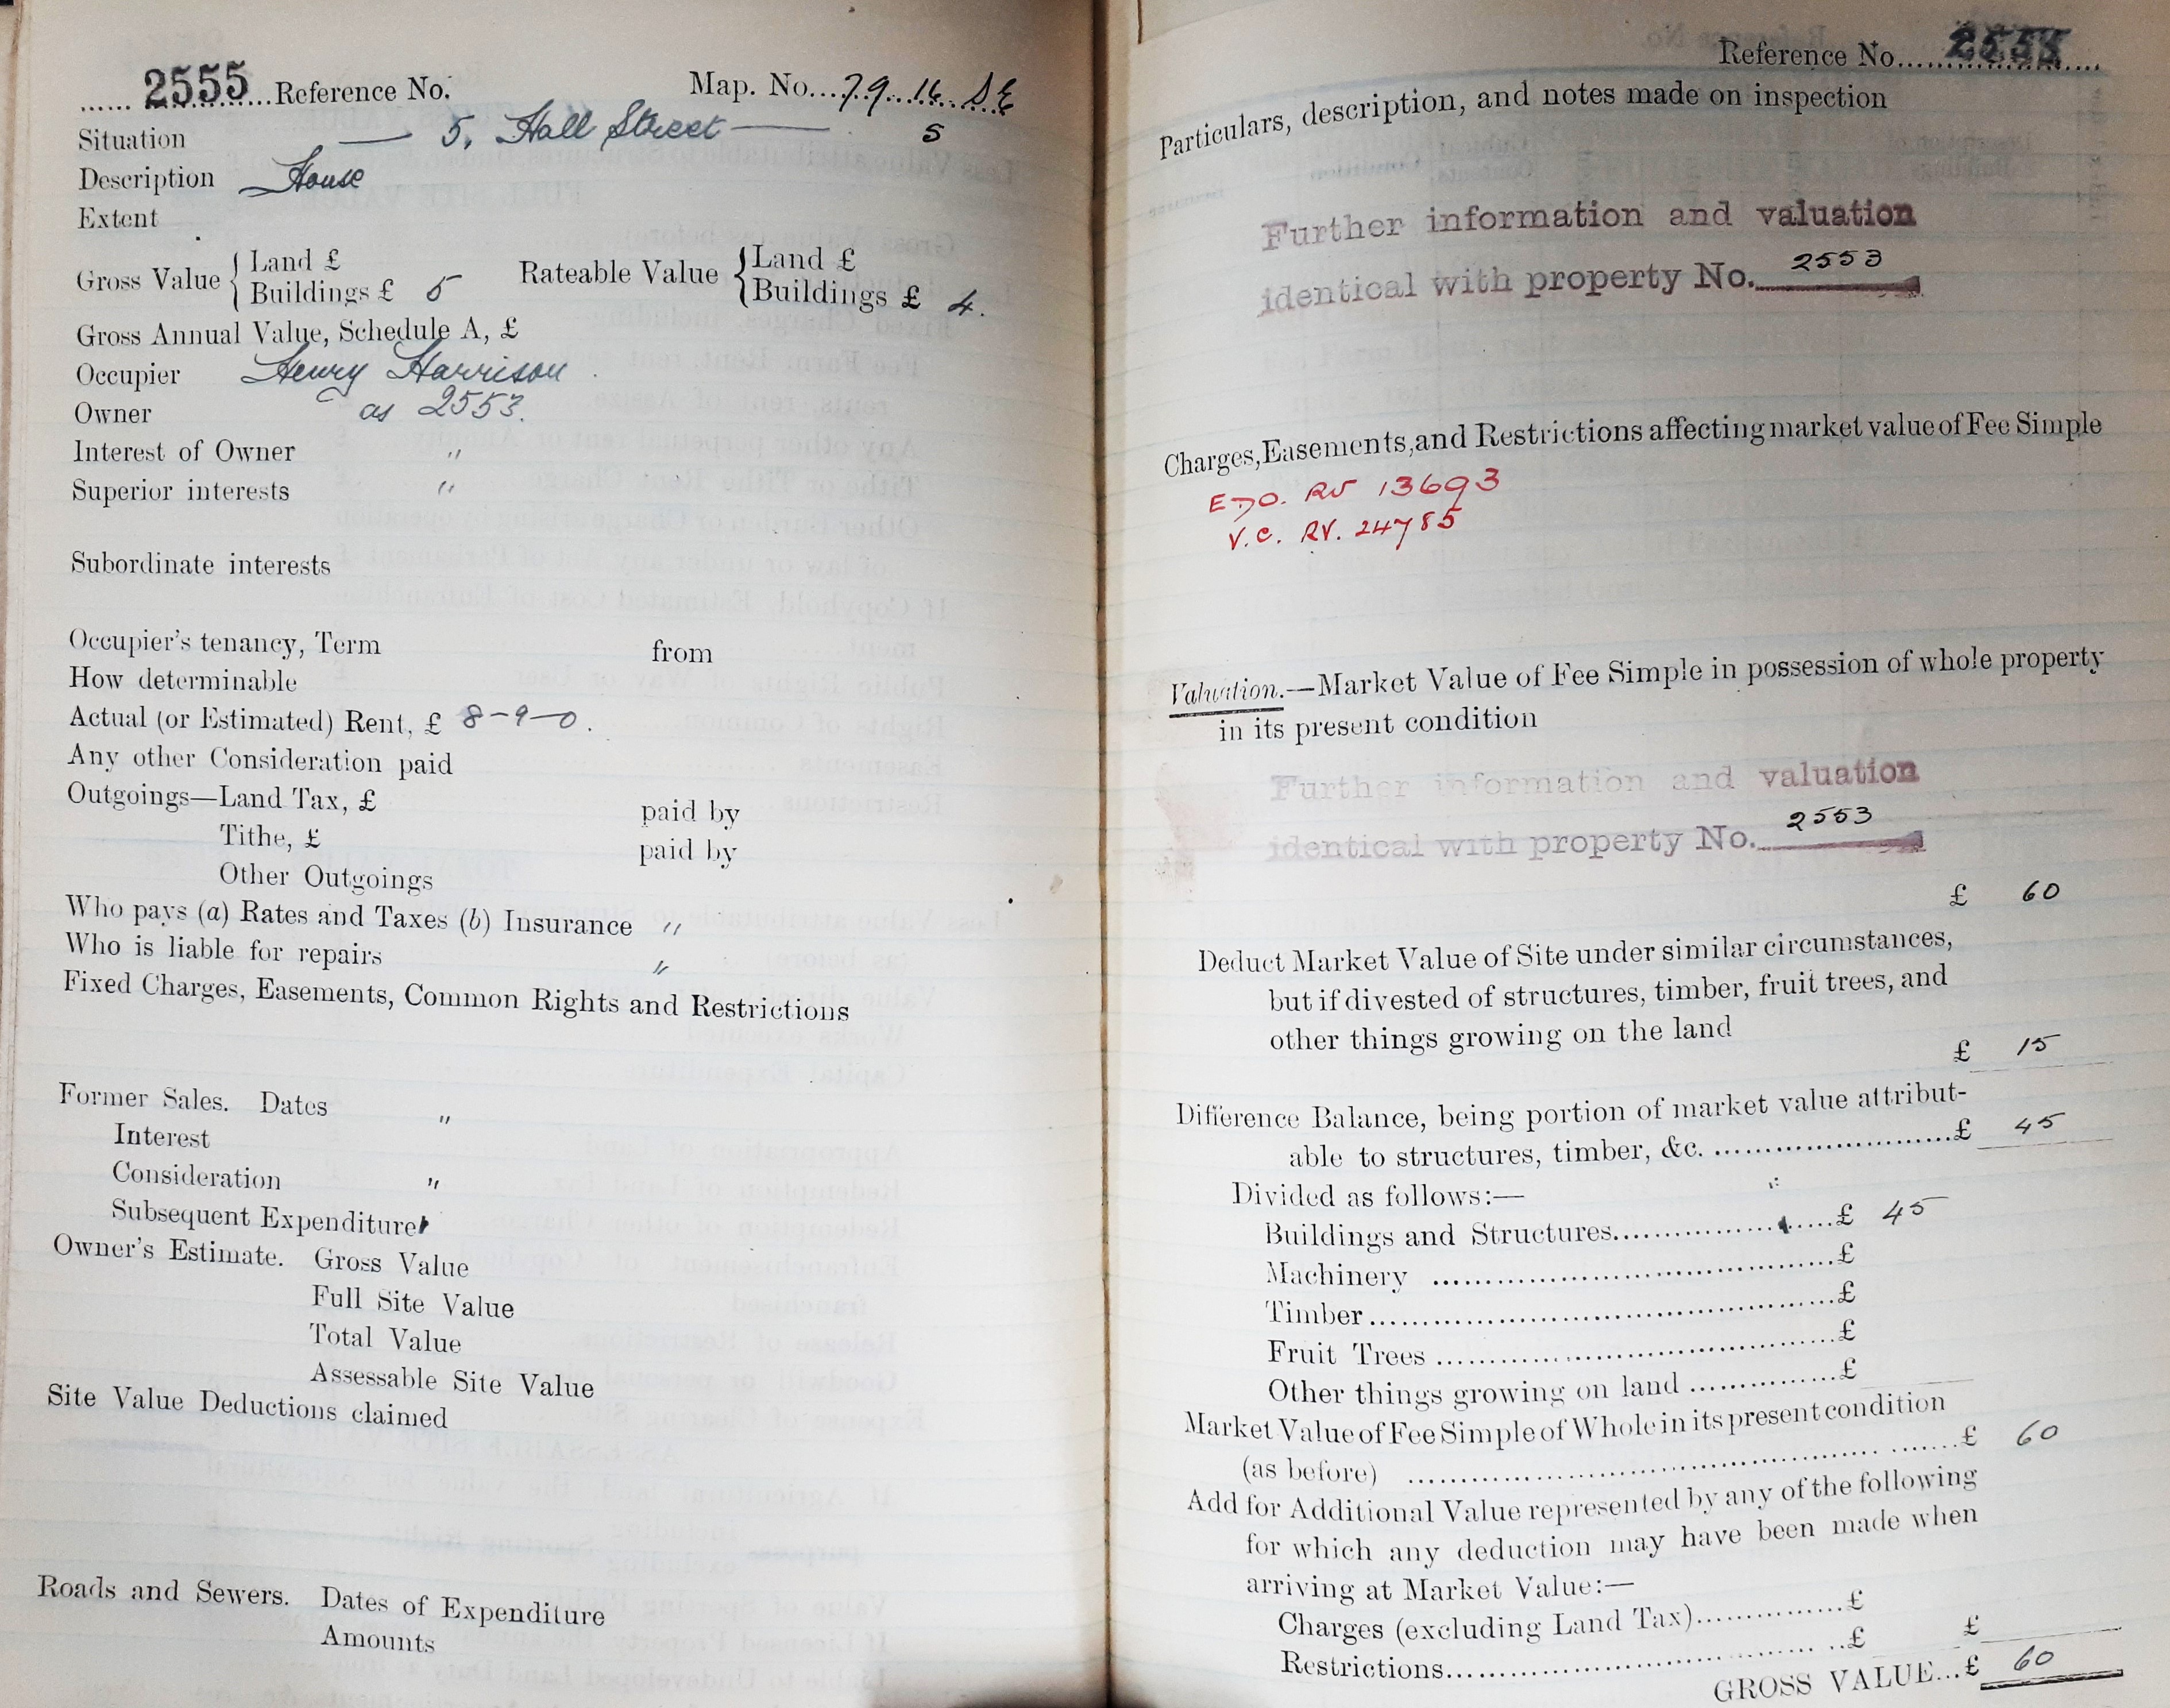 2555 Reference No. Map. No. 79.16 SE
Situation — 5, Hall Street — 5
Description House
Extent
Gross Value { Land £
Buildings £ 5
Rateable Value { Land £
Buildings £ 4.
Gross Annual Value, Schedule A, £
Occupier Henry Harrison
Owner as 2553.
Interest of Owner "
Superior interests "
Subordinate interests
Occupier's tenancy, Term from
How determinable
Actual (or Estimated) Rent, £ 8-9-0.
Any other Consideration paid
Outgoings—Land Tax, £ paid by
Tithe, £ paid by
Other Outgoings
Who pays (a) Rates and Taxes (b) Insurance "
Who is liable for repairs "
Fixed Charges, Easements, Common Rights and Restrictions
Former Sales. Dates "
Interest
Consideration "
Subsequent Expenditure
Owner's Estimate. Gross Value
Full Site Value
Total Value
Assessable Site Value
Site Value Deductions claimed
Roads and Sewers. Dates of Expenditure
Amounts
Reference No. 2555
Particulars, description, and notes made on inspection
Further information and valuation
identical with property No. 2553
Charges, Easements, and Restrictions affecting market value of Fee Simple
RV 13693
V.C. RV. 24785
Valuation.—Market Value of Fee Simple in possession of whole property
in its present condition
Further information and valuation
identical with property No. 2553
£ 60
Deduct Market Value of Site under similar circumstances,
but if divested of structures, timber, fruit trees, and
other things growing on the land
£ 15
Difference Balance, being portion of market value attribut-
able to structures, timber, &c. £ 45
Divided as follows:—
Buildings and Structures £ 45
Machinery £
Timber £
Fruit Trees £
Other things growing on land £
Market Value of Fee Simple of Whole in its present condition
(as before) £ 60
Add for Additional Value represented by any of the following
for which any deduction may have been made when
arriving at Market Value:—
Charges (excluding Land Tax) £
Restrictions £ £
GROSS VALUE... £ 60